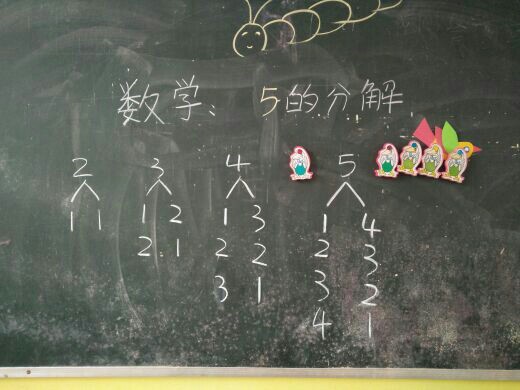 数学: 5的分解
2 3 4 5
1 1 1 2 1 3 1 4
2 1 2 2 2 3
3 1 3 2
4 1